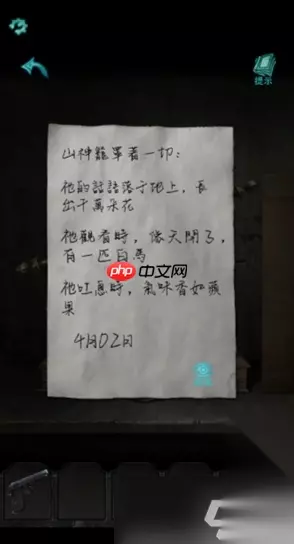 提示
山神籠罩著一切：
祂的話語落于地上，長
出千萬朵花
祂觀看時，像天閉了，
有一匹白馬
祂吐息時，氣味香如蘋
果
php 中文网
4月02日